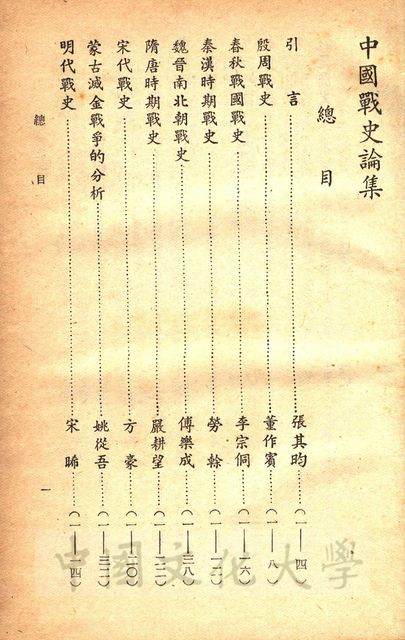 中國戰史論集
總目
引言……張其昀……(一——四)
殷周戰史……董作賓……(一——八)
春秋戰國戰史……李宗侗……(一——一六)
秦漢時期戰史……勞榦……(一——一二)
魏晉南北朝戰史……傅樂成……(一——三八)
隋唐時期戰史……嚴耕望……(一——二二)
宋代戰史……方豪……(一——二〇)
蒙古滅金戰爭的分析……姚從吾……(一——三二)
明代戰史……宋晞……(一——一四)
總目
一
中國文化大學